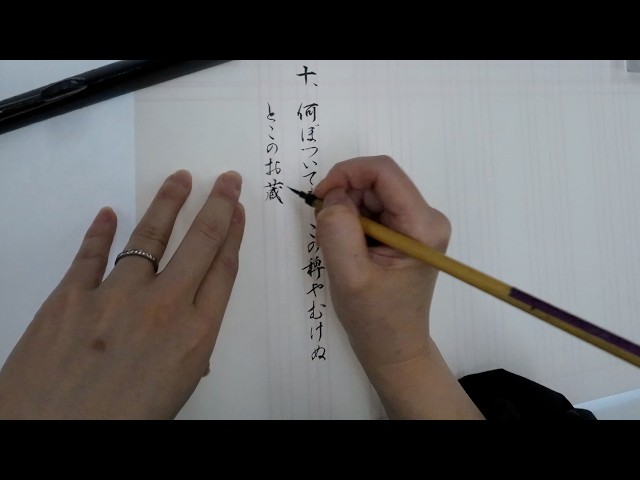 十、何ぼついて この稗やむけぬ
とこのお蔵